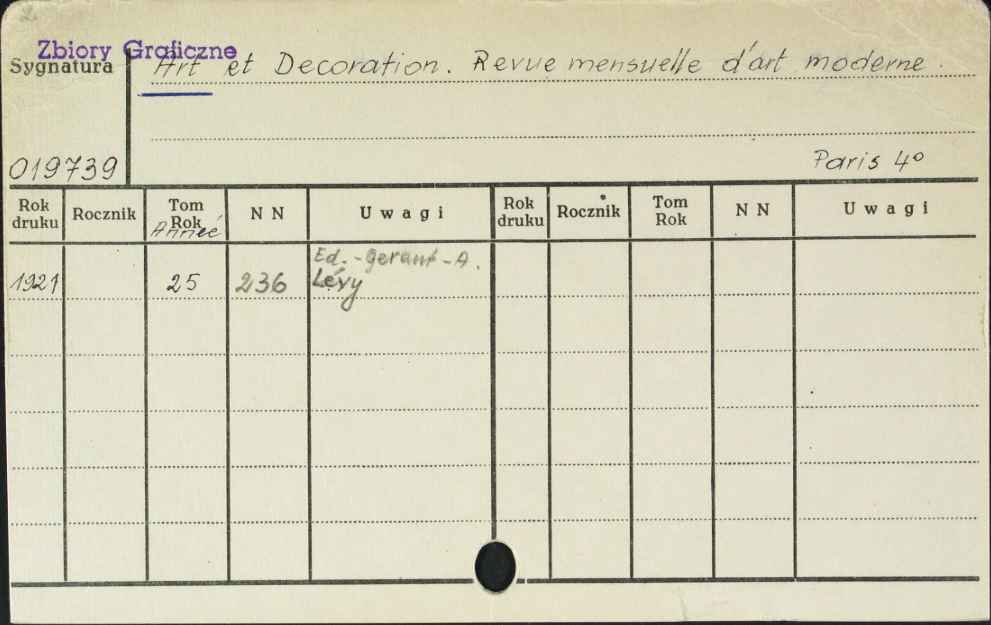 Zbiory Graficzne
Sygnatura
Art et Decoration. Revue mensuelle d'art moderne.
019739
Paris 4º
Rok druku Rocznik Tom Rok Année N N Uwagi Rok druku Rocznik Tom Rok N N Uwagi
Ed.-Gerant-A.
1921 25 236 Lévy